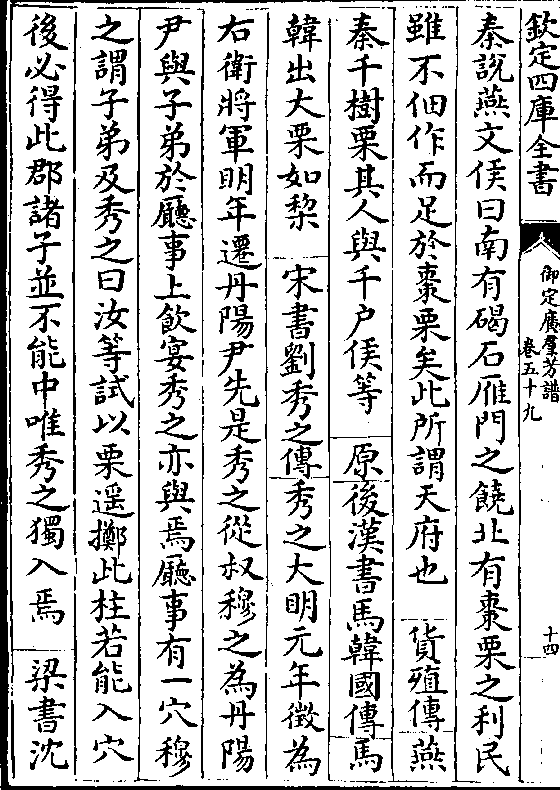 欽定四庫全書
御定廣羣芳譜
卷五十九
十四
秦說燕文侯曰南有碣石雁門之饒北有棗栗之利民
雖不佃作而足於棗栗矣此所謂天府也 貨殖傳燕
秦千樹栗其人與千户侯等 原後漢書馬韓國傳馬
韓出大栗如梨 宋書劉秀之傳秀之大明元年徵為
右衛將軍明年遷丹陽尹先是秀之從叔穆之為丹陽
尹與子弟於廳事上飲宴秀之亦與焉廳事有一穴穆
之謂子弟及秀之曰汝等試以栗遥擲此柱若能入穴
後必得此郡諸子並不能中唯秀之獨入焉 梁書沈